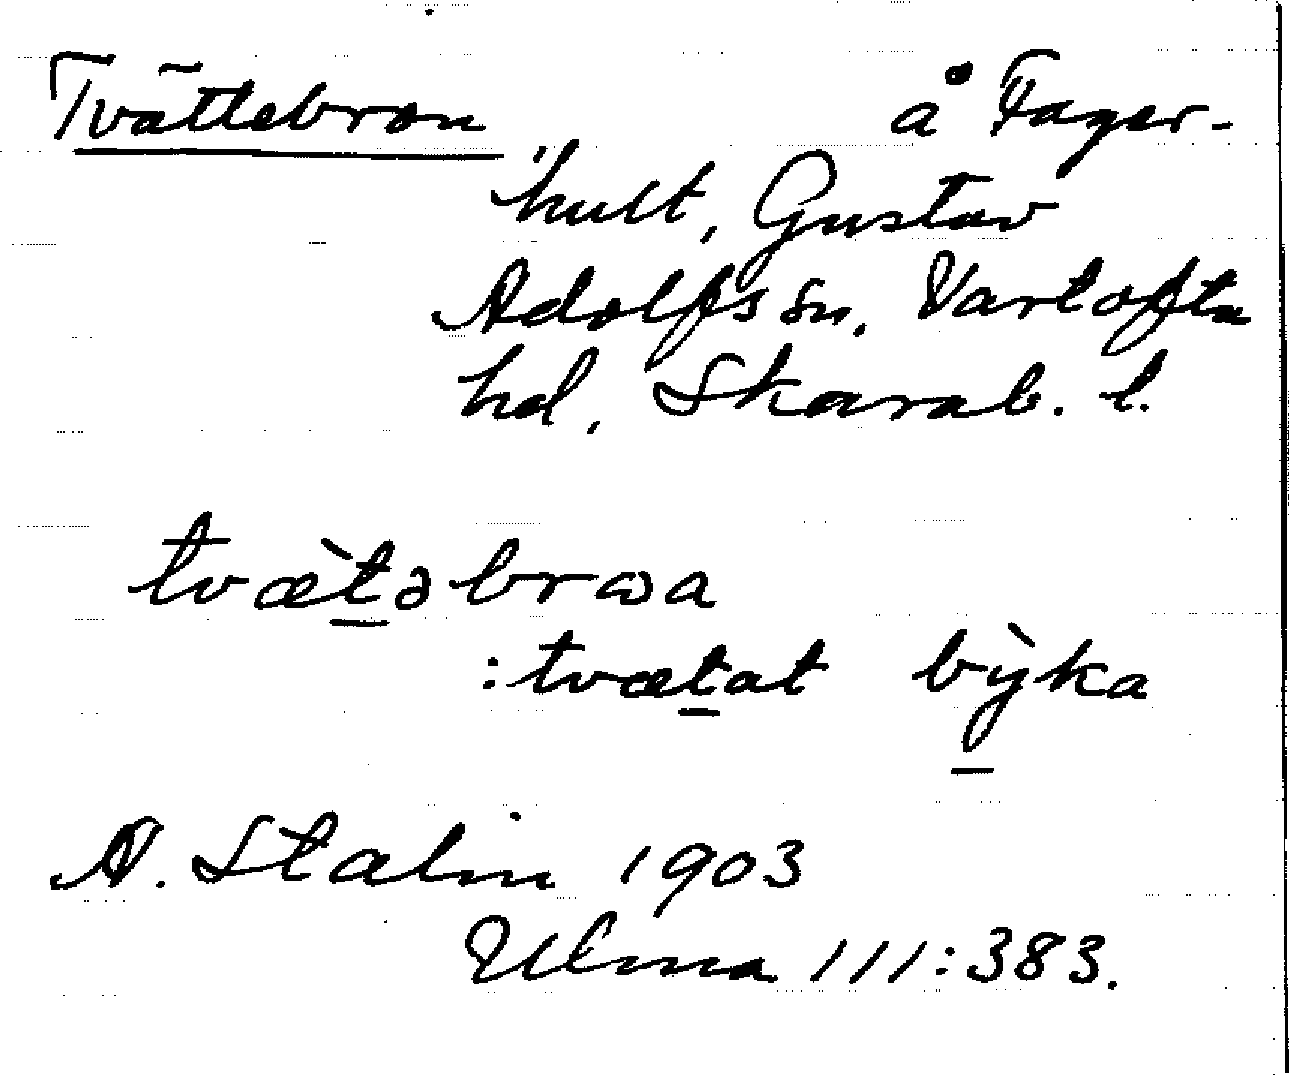 Tvättebron å Fager-
hult, Gustav
Adolfs sn, Vartofta
hd, Skarab. l.
tvæ̀təbrωa
:tvætat bỳka
A. Stalin 1903
Ulma 111:383.